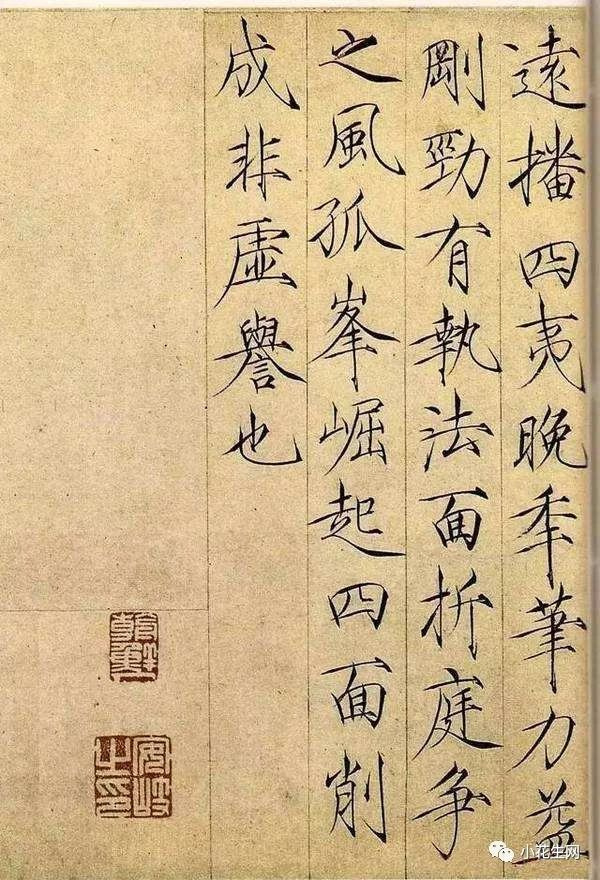 遠播四夷晚秊筆力益
剛勁有執法面折庭争
之風孤峯崛起四面削
成非虛譽也
安岐之印
小花生网